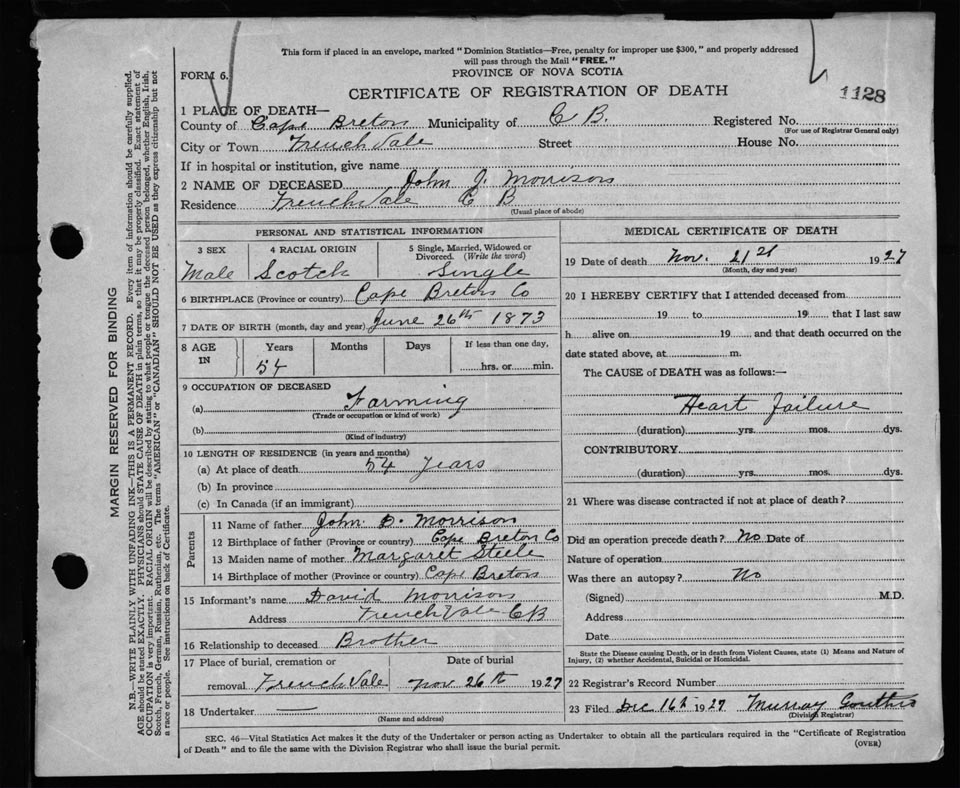 This form if placed in an envelope, marked "Dominion Statistics—Free, penalty for improper use $300," and properly addressed
will pass through the Mail "FREE."
FORM 6.
PROVINCE OF NOVA SCOTIA
CERTIFICATE OF REGISTRATION OF DEATH
1128
1 PLACE OF DEATH—
County of Cape Breton Municipality of C B. Registered No.
(For use of Registrar General only)
City or Town French Vale Street House No.
If in hospital or institution, give name
2 NAME OF DECEASED John J. Morrison
Residence French Vale C B
(Usual place of abode)
PERSONAL AND STATISTICAL INFORMATION
3 SEX 4 RACIAL ORIGIN 5 Single, Married, Widowed or Divorced. (Write the word)
Male Scotch Single
6 BIRTHPLACE (Province or country) Cape Breton Co
7 DATE OF BIRTH (month, day and year) June 26th 1873
8 AGE IN Years Months Days If less than one day,
54 hrs. or min.
9 OCCUPATION OF DECEASED
(a) Farming
(Trade or occupation or kind of work)
(b)
(Kind of industry)
10 LENGTH OF RESIDENCE (in years and months)
(a) At place of death 54 years
(b) In province
(c) In Canada (if an immigrant)
Parents
11 Name of father John D. Morrison
12 Birthplace of father (Province or country) Cape Breton Co
13 Maiden name of mother Margaret Steele
14 Birthplace of mother (Province or country) Cape Breton
15 Informant's name David Morrison
Address French Vale CB
16 Relationship to deceased Brother
17 Place of burial, cremation or Date of burial
removal French Vale Nov 26th 1927
18 Undertaker
(Name and address)
MEDICAL CERTIFICATE OF DEATH
19 Date of death Nov. 21st 1927
(Month, day and year)
20 I HEREBY CERTIFY that I attended deceased from
19 to 19 that I last saw
h alive on 19 and that death occurred on the
date stated above, at m.
The CAUSE of DEATH was as follows:—
Heart Failure
(duration) yrs. mos. dys.
CONTRIBUTORY
(duration) yrs. mos. dys.
21 Where was disease contracted if not at place of death?
Did an operation precede death? No Date of
Nature of operation
Was there an autopsy? No
(Signed) M.D.
Address
Date
State the Disease causing Death, or in death from Violent Causes, state (1) Means and Nature of
Injury, (2) whether Accidental, Suicidal or Homicidal.
22 Registrar's Record Number
23 Filed Dec 16th 1927 Murray
(Division Registrar)
SEC. 46—Vital Statistics Act makes it the duty of the Undertaker or person acting as Undertaker to obtain all the particulars required in the "Certificate of Registration
of Death" and to file the same with the Division Registrar who shall issue the burial permit.
(OVER)
MARGIN RESERVED FOR BINDING
N.B.—WRITE PLAINLY WITH UNFADING INK—THIS IS A PERMANENT RECORD. Every item of information should be carefully supplied.
AGE should be stated EXACTLY. PHYSICIANS should STATE CAUSE OF DEATH in plain terms, so that it may be properly classified. Exact statement of
OCCUPATION is very important. RACIAL ORIGIN will be described by stating to what people or tongue the deceased person belonged, whether English, Irish,
Scotch, French, German, Russian, Ruthenian, etc. The terms "AMERICAN" or "CANADIAN" SHOULD NOT BE USED as they express citizenship but not
a race or people. See instructions on back of Certificate.